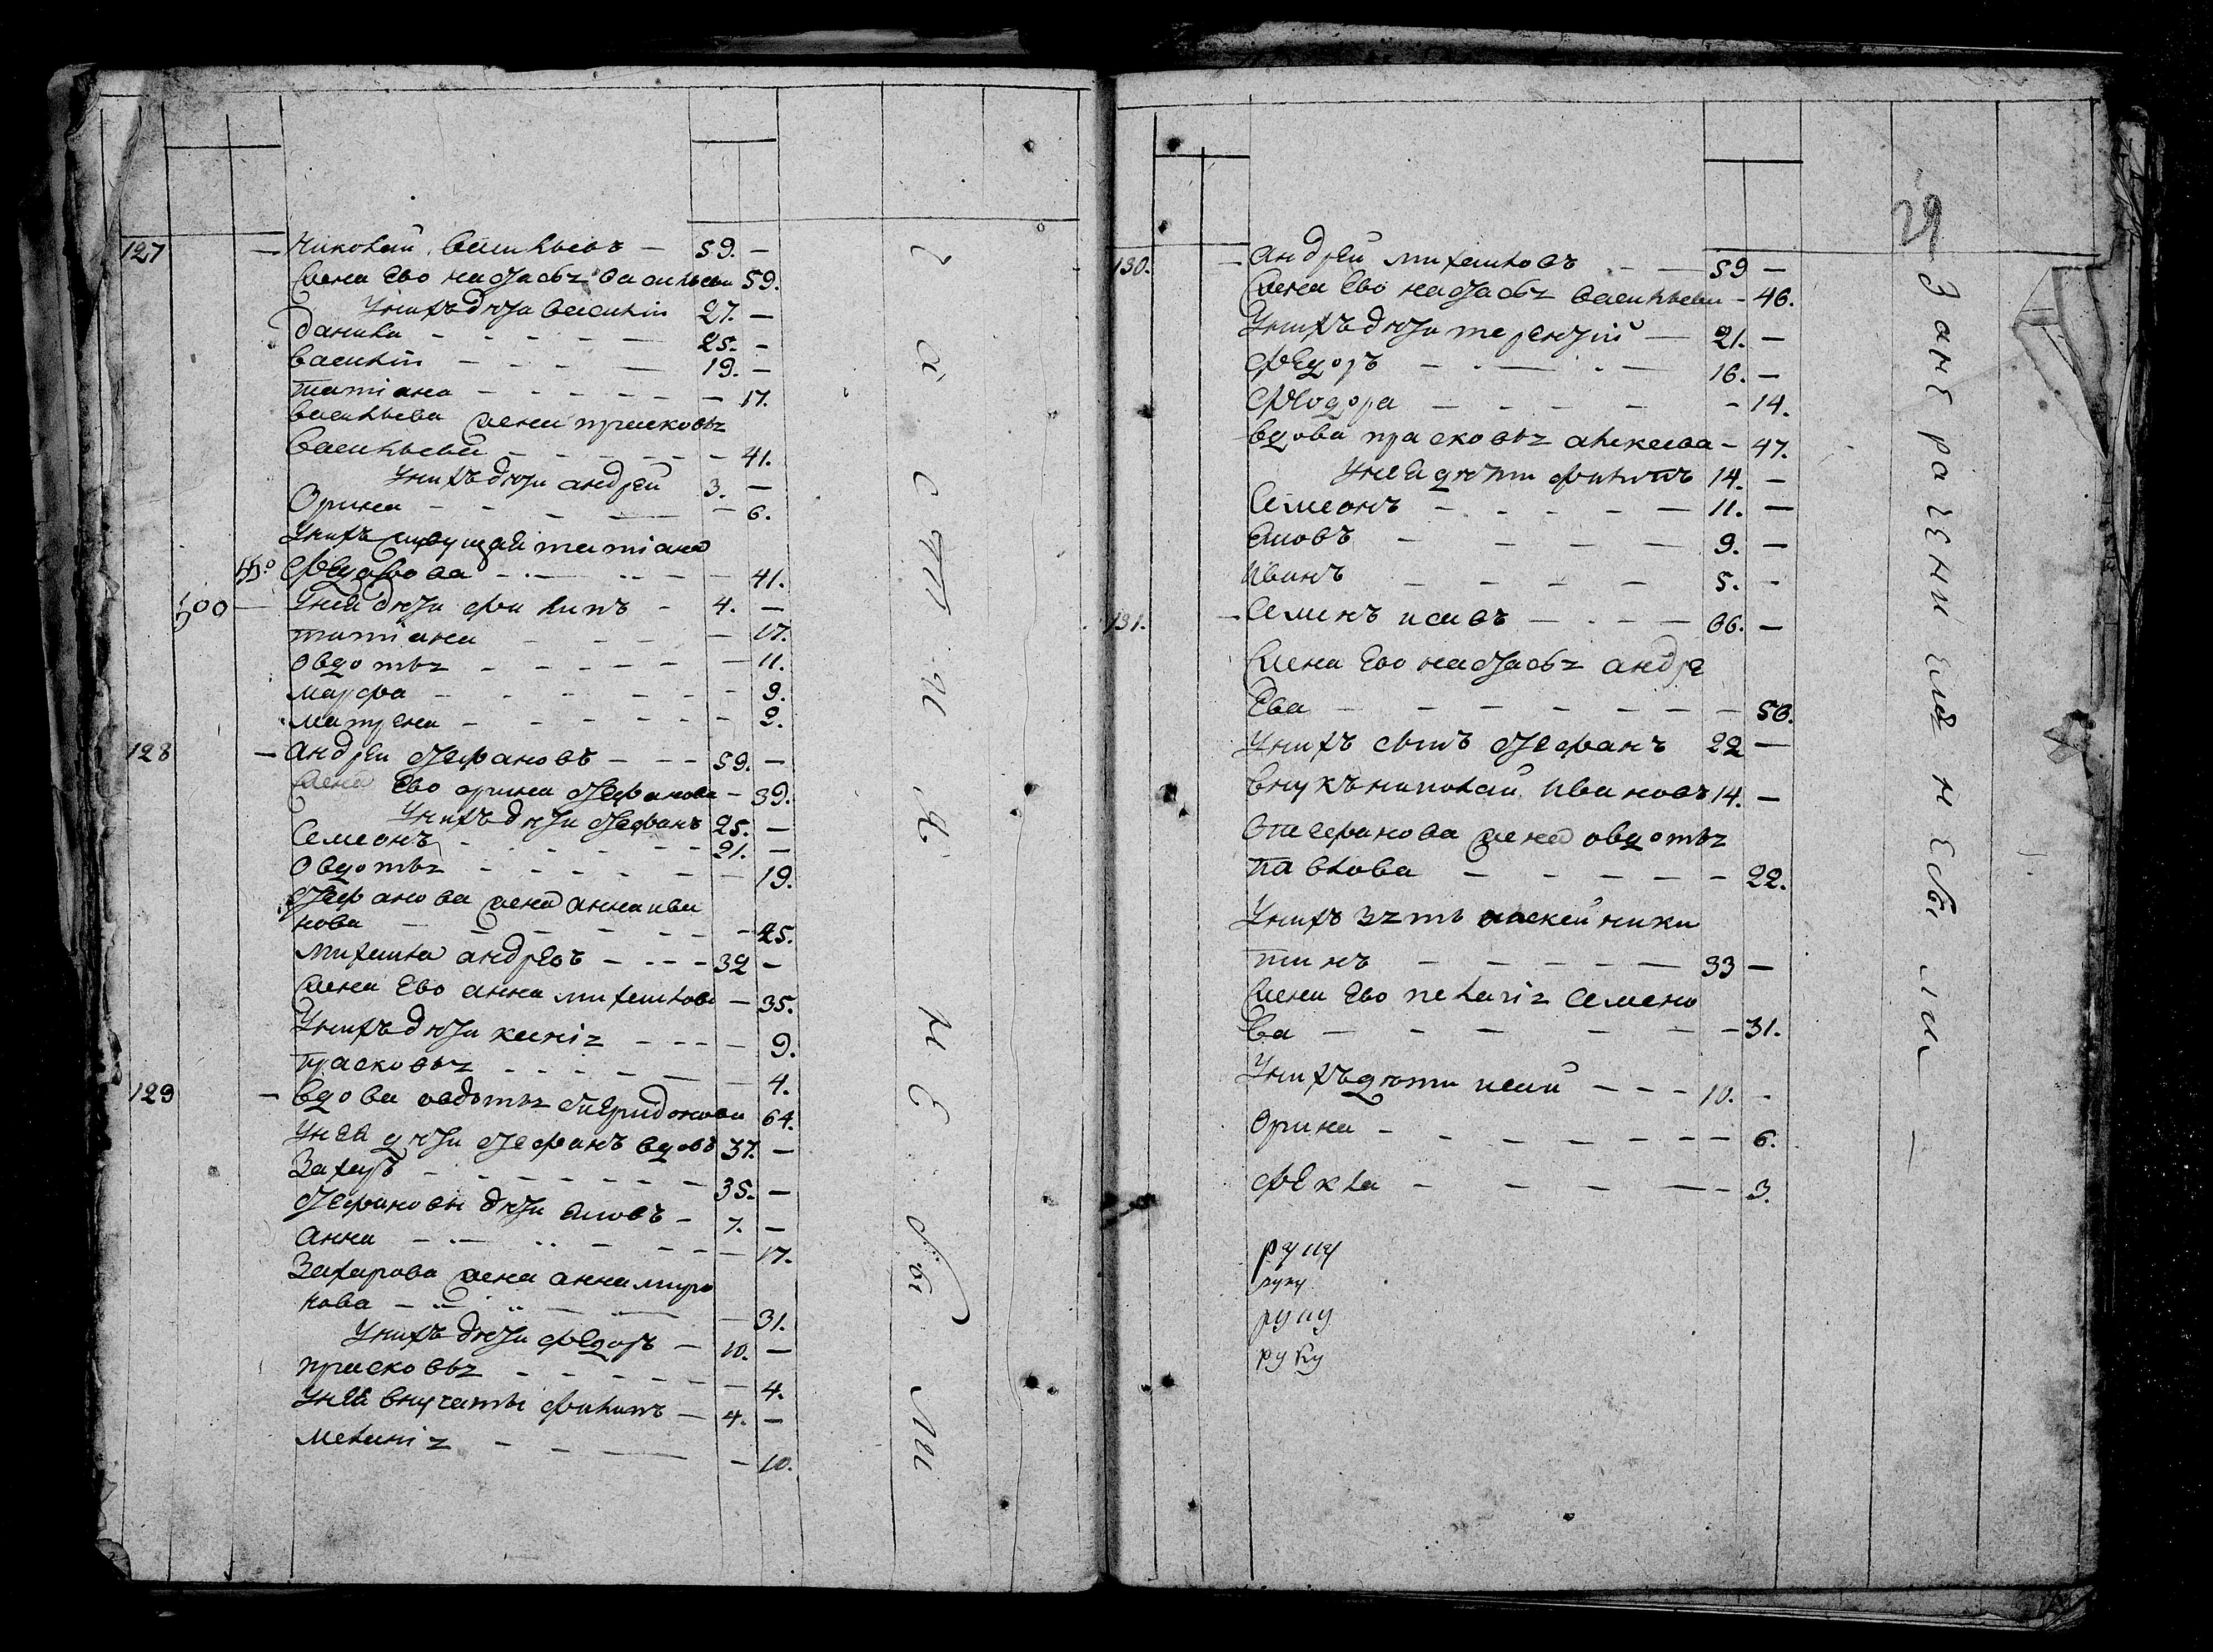 127 — Николай Васильевъ — 59. —
Жена Ево настасья васильева 59.
Унихъ дети василий 27. —
данила — 25. —
василий — 19. —
татиана — 17.
васильева жена прасковья
васильева — 41.
Унихъ дети андрей 3. —
Орина — 6.
Унихъ живущая татиана
Федорова — 41.
500 — Унея дети филипъ — 4. —
татиана — 17.
овдотья — 11.
марфа — 9.
матрена — 2.
128 — андреи стефановъ — 59. —
жена Ево орина стефанова — 39.
Унихъ дети стефанъ 25. —
Семеонъ — 21. —
овдотья — 19.
стефанова жена анна ива
нова — 25.
михаила андревъ — 32 —
жена Ево анна михаилова — 35.
Унихъ дети ксения — 9.
прасковья — 4.
129 — вдова авдотья спиридонова 64.
Унея дети стефанъ вдовъ 37. —
Захаръ — 35. —
стефановы дети яковъ — 7. —
анна — 17.
Захарова жена анна миро
нова — 31.
Унихъ дети федоръ — 10. —
прасковья — 4.
Унея внучаты филипъ — 4. —
мелания — 10.
130. — андрей михаиловъ — 59 —
жена Ево настасья васильева — 46.
Унихъ дети терентий — 21. —
федоръ — 16. —
феодора — 14.
вдова прасковья алексеева — 47.
Унея дети филипъ 14. —
Семеонъ — 11. —
яковъ — 9. —
иванъ — 5. —
131. — Семенъ исаевъ — 66. —
жена Ево настасья андре
Ева — 56.
Унихъ сынъ стефанъ 22 —
внукъ николай ивановъ 14. —
стефанова жена овдотья
павлова — 22.
Унихъ зять алексей ники
тинъ — 33 —
жена Ево пелагия Семено
ва — 31.
Унихъ дети исай — 10. —
Орина — 6.
фекла — 3.
руку
руку
руку
руку